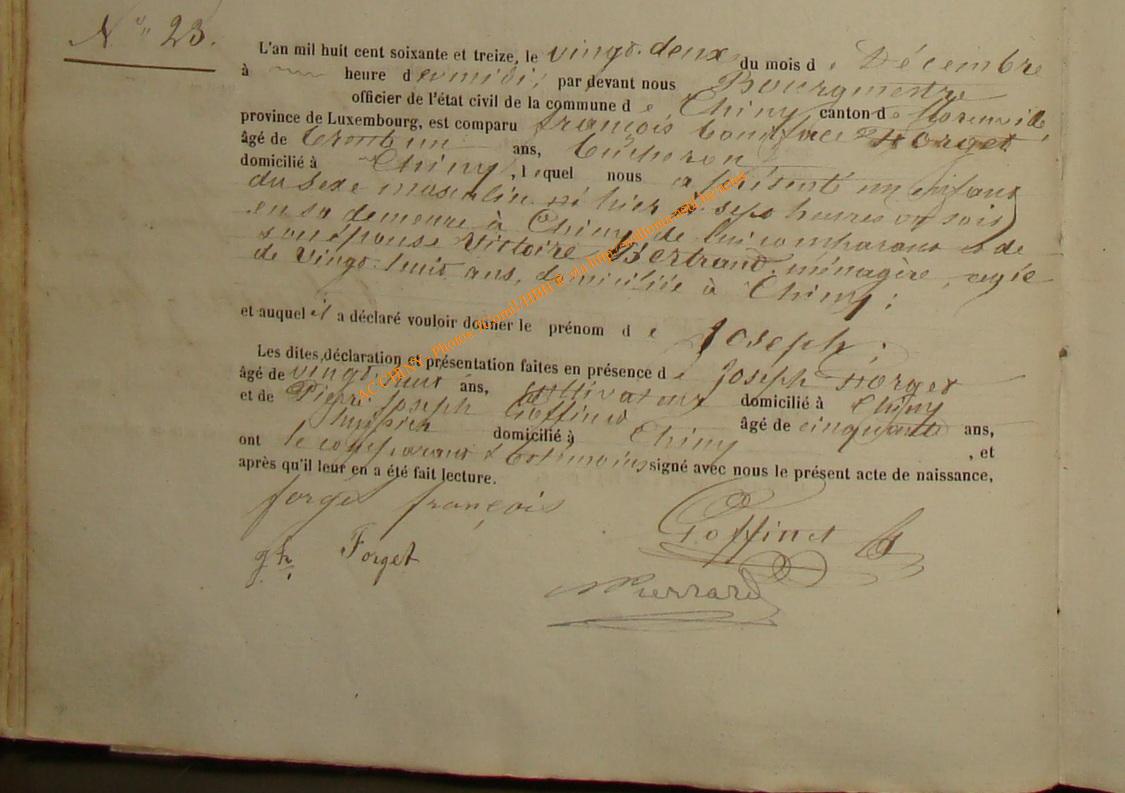 N° 23.
L'an mil huit cent soixante et treize, le vingt-deux du mois de Décembre
à heure de midi, par devant nous Bourgmestre
officier de l'état civil de la commune de Chiny canton de Florenville
province de Luxembourg, est comparu françois Forget
âgé de ans, bucheron
domicilié à Chiny, lequel nous a présenté un enfant
du sexe masculin né hier à sept heures du soir
en sa demeure à Chiny de lui comparant et de
son épouse Victoire Bertrand ménagère, agée
de vingt-huit ans, domiciliée à Chiny;
et auquel il a déclaré vouloir donner le prénom de Joseph;
Les dites déclaration et présentation faites en présence de Joseph Forget
âgé de ans, cultivateur domicilié à Chiny
et de Pierre Joseph Goffinet âgé de cinquante ans,
domicilié à Chiny, et
ont le comparant & témoins signé avec nous le présent acte de naissance,
après qu'il leur en a été fait lecture.
forget françois
Goffinet
Forget
Pierrard